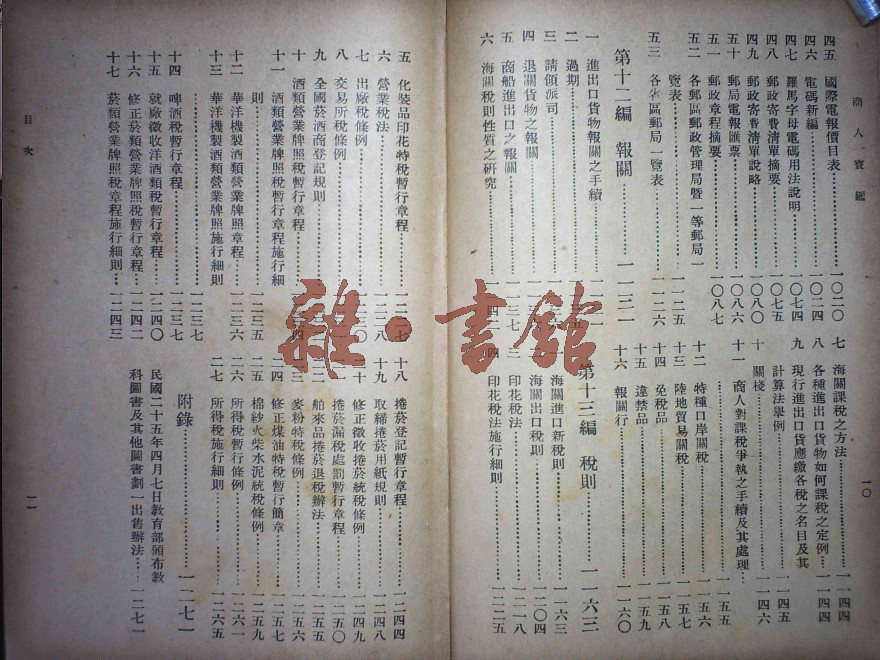 商人寶鑑
一〇
四五 國際電報價目表……一〇二〇
四六 電碼新編……一〇二四
四七 羅馬字母電碼用法說明……一〇七四
四八 郵政寄費清單摘要……一〇七五
四九 郵政寄費清單說略……一〇八〇
五十 郵局電報匯票……一〇八六
五一 郵政章程摘要……一〇八七
五二 各郵區郵政管理局暨一等郵局一
覽表……一一二五
五三 各省區郵局一覽表……一一二六
第十二編 報關……一一三一
一 進出口貨物報關之手續
二 過期
三 請領派司
四 退關貨物之報關
五 商船進出口之報關……一一三七
六 海關稅則性質之研究
七 海關課稅之方法……一一四四
八 各種進出口貨物如何課稅之定例……一一四四
九 現行進出口貨應繳各稅之名目及其
計算法舉例……一一四五
十 關棧……一一四六
十一 商人對課稅爭執之手續及其處理
……一一五五
十二 特種口岸關稅……一一五六
十三 陸地貿易關稅……一一五七
十四 免稅品……一一五九
十五 違禁品……一一五九
十六 報關行……一一六〇
第十三編 稅則……一一六三
海關進口新稅則……一一六三
海關出口稅則……一二〇四
三 印花稅法……一二一八
四 印花稅法施行細則……一二二五
五 化裝品印花特稅暫行章程……一二二七
六 營業稅法……一二二八
七 出廠稅條例
八 交易所稅條例
九 全國菸酒商登記規則
十 酒類營業牌照稅暫行章程
十一 酒類營業牌照稅暫行章程施行細
則……一二三五
十二 華洋機製酒類營業牌照章程……一二三六
十三 華洋機製酒類營業牌照施行細則
……一二三七
十四 啤酒稅暫行章程……一二三七
十五 就廠徵收洋酒類稅暫行章程……一二四〇
十六 修正菸類營業牌照稅暫行章程……一二四二
十七 菸類營業牌照稅章程施行細則……一二四三
十八 捲菸登記暫行章程……一二四四
十九 取締捲菸用紙規則……一二四八
二十 修正徵收捲菸統稅條例……一二四九
捲菸漏稅處罰暫行章程……一二五〇
舶來品捲菸退稅辦法……一二五五
麥粉特稅條例……一二五六
二四 修正煤油特稅暫行簡章……一二五七
二五 棉紗火柴水泥統稅條例……一二五九
二六 所得稅暫行條例……一二六一
二七 所得稅施行細則……一二六五
附錄……一二七一
民國二十五年四月七日教育部頒布教
科圖書及其他圖書劃一出售辦法……一二七一
目次
一一
雜·書館